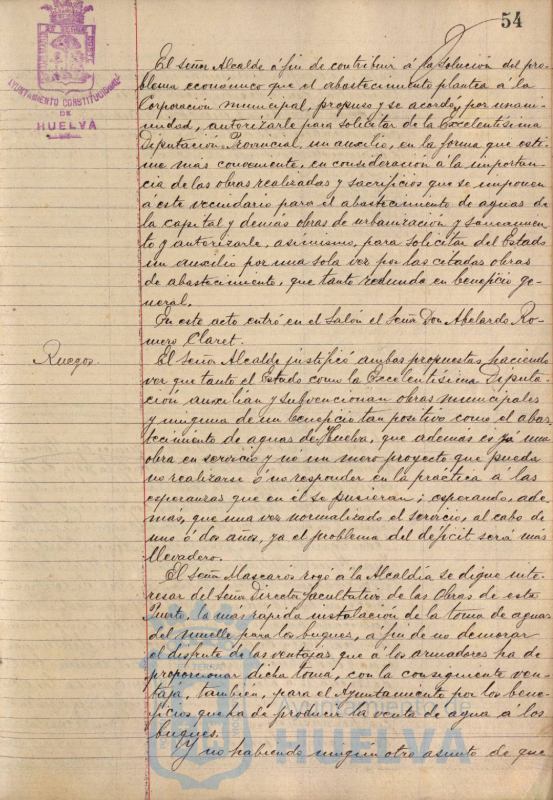 54
AYUNTAMIENTO CONSTITUCIONAL
DE
HUELVA
El señor Alcalde á fin de contribuir á la solución del pro-
blema económico que el abastecimiento plantea á la
Corporación municipal, propuso y se acordó, por unani-
midad, autorizarle para solicitar de la Excelentísima
Diputación Provincial, un auxilio, en la forma que esti-
me más conveniente, en consideración á la importan-
cia de las obras realizadas y sacrificios que se imponen
á este vecindario para el abastecimiento de aguas de
la capital y demás obras de urbanización y saneamien-
to y autorizarle, asimismo, para solicitar del Estado
un auxilio por una sola vez por las citadas obras
de abastecimiento, que tanto redunda en beneficio ge-
neral.
En este acto entró en el Salón el Señor Don Abelardo Ro-
mero Claret.
Ruegos.
El Señor Alcalde justificó ambas propuestas, haciendo
ver que tanto el Estado como la Excelentísima Diputa-
ción auxilian y subvencionan obras municipales
y ninguna de un beneficio tan positivo como el abas-
tecimiento de aguas de Huelva, que además es ya una
obra en servicio y nó un mero proyecto que pueda
no realizarse ó no responder en la práctica á las
esperanzas que en él se pusieran; esperando, ade-
más, que una vez normalizado el servicio, al cabo de
uno ó dos años, ya el problema del déficit será más
llevadero.
El Señor Mascarós rogó á la Alcaldía se digne inte-
resar del Señor Director facultativo de las Obras de este
Puerto, la más rápida instalación de la toma de aguas
del muelle para los buques, á fin de no demorar
el disfrute de las ventajas que á los armadores ha de
proporcionar dicha toma, con la consiguiente ven-
taja, tambien, para el Ayuntamiento por los bene-
ficios que ha de producir la venta de agua á los
buques.
Y no habiendo ningún otro asunto de que
Ayuntamiento de
HUELVA